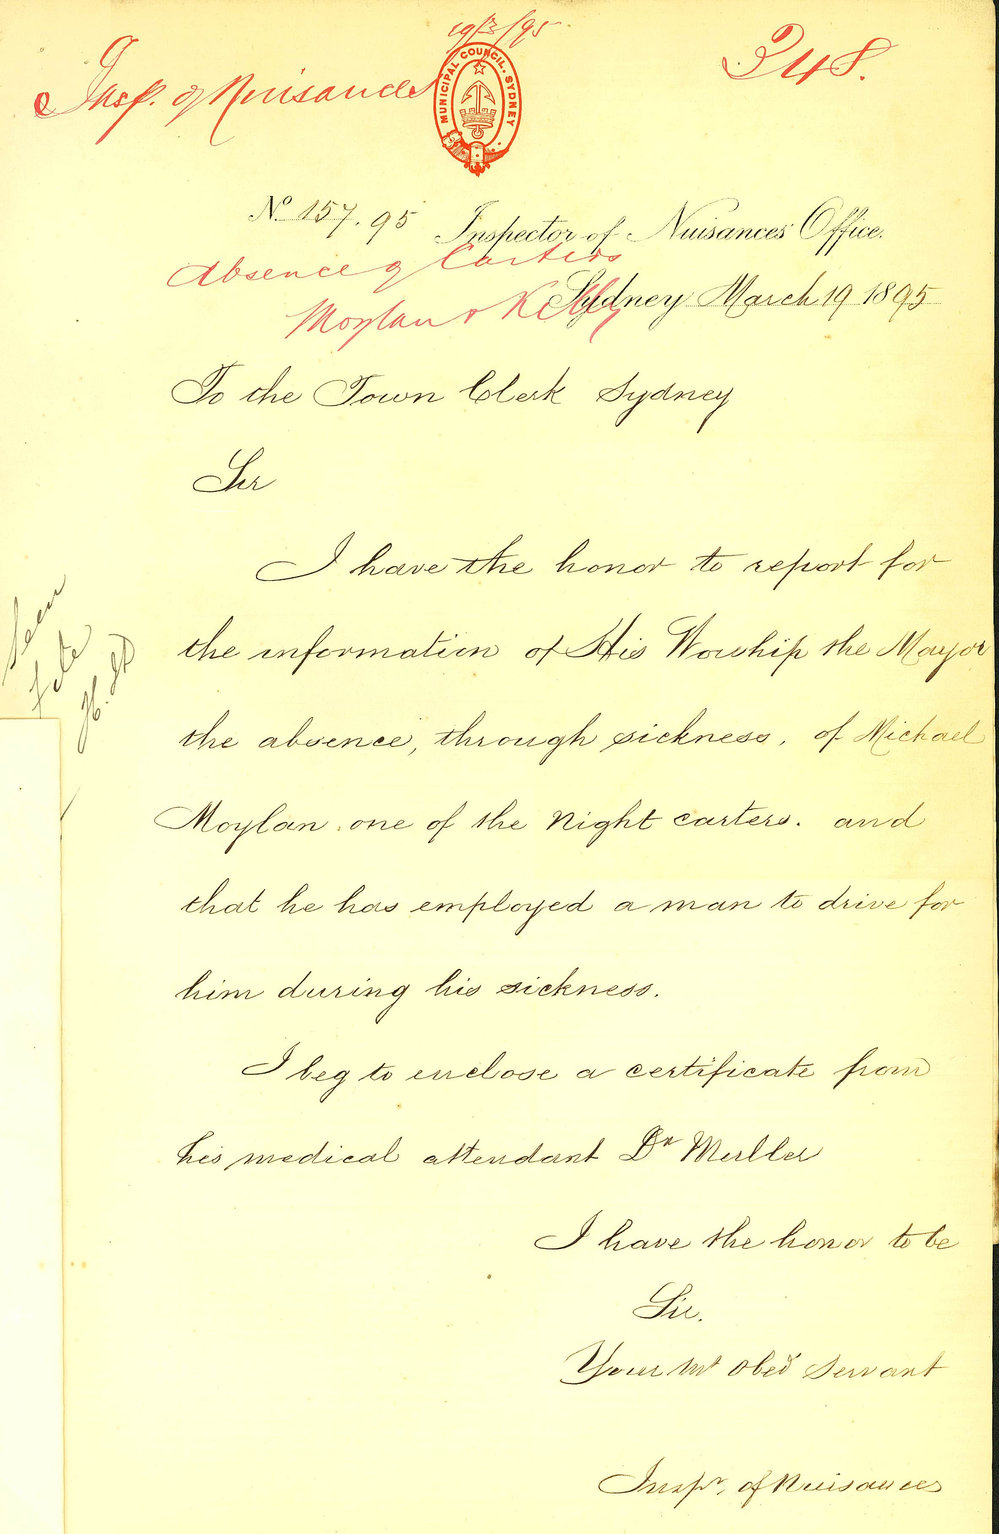 19/3/95
Insp. of Nuisances
MUNICIPAL COUNCIL. SYDNEY
348.
No 157.95 Inspector of Nuisances' Office.
Absence of Carters
Moylan & Kelly
Sydney March 19 1895
To the Town Clerk Sydney
Sir
I have the honor to report for
the information of His Worship the Mayor
the absence, through sickness, of Michael
Moylan one of the night carters. and
that he has employed a man to drive for
him during his sickness.
I beg to enclose a certificate from
his medical attendant Dr Muller
I have the honor to be
Sir.
Your Mt Obed Servant
Inspr. of Nuisances
Seen
File